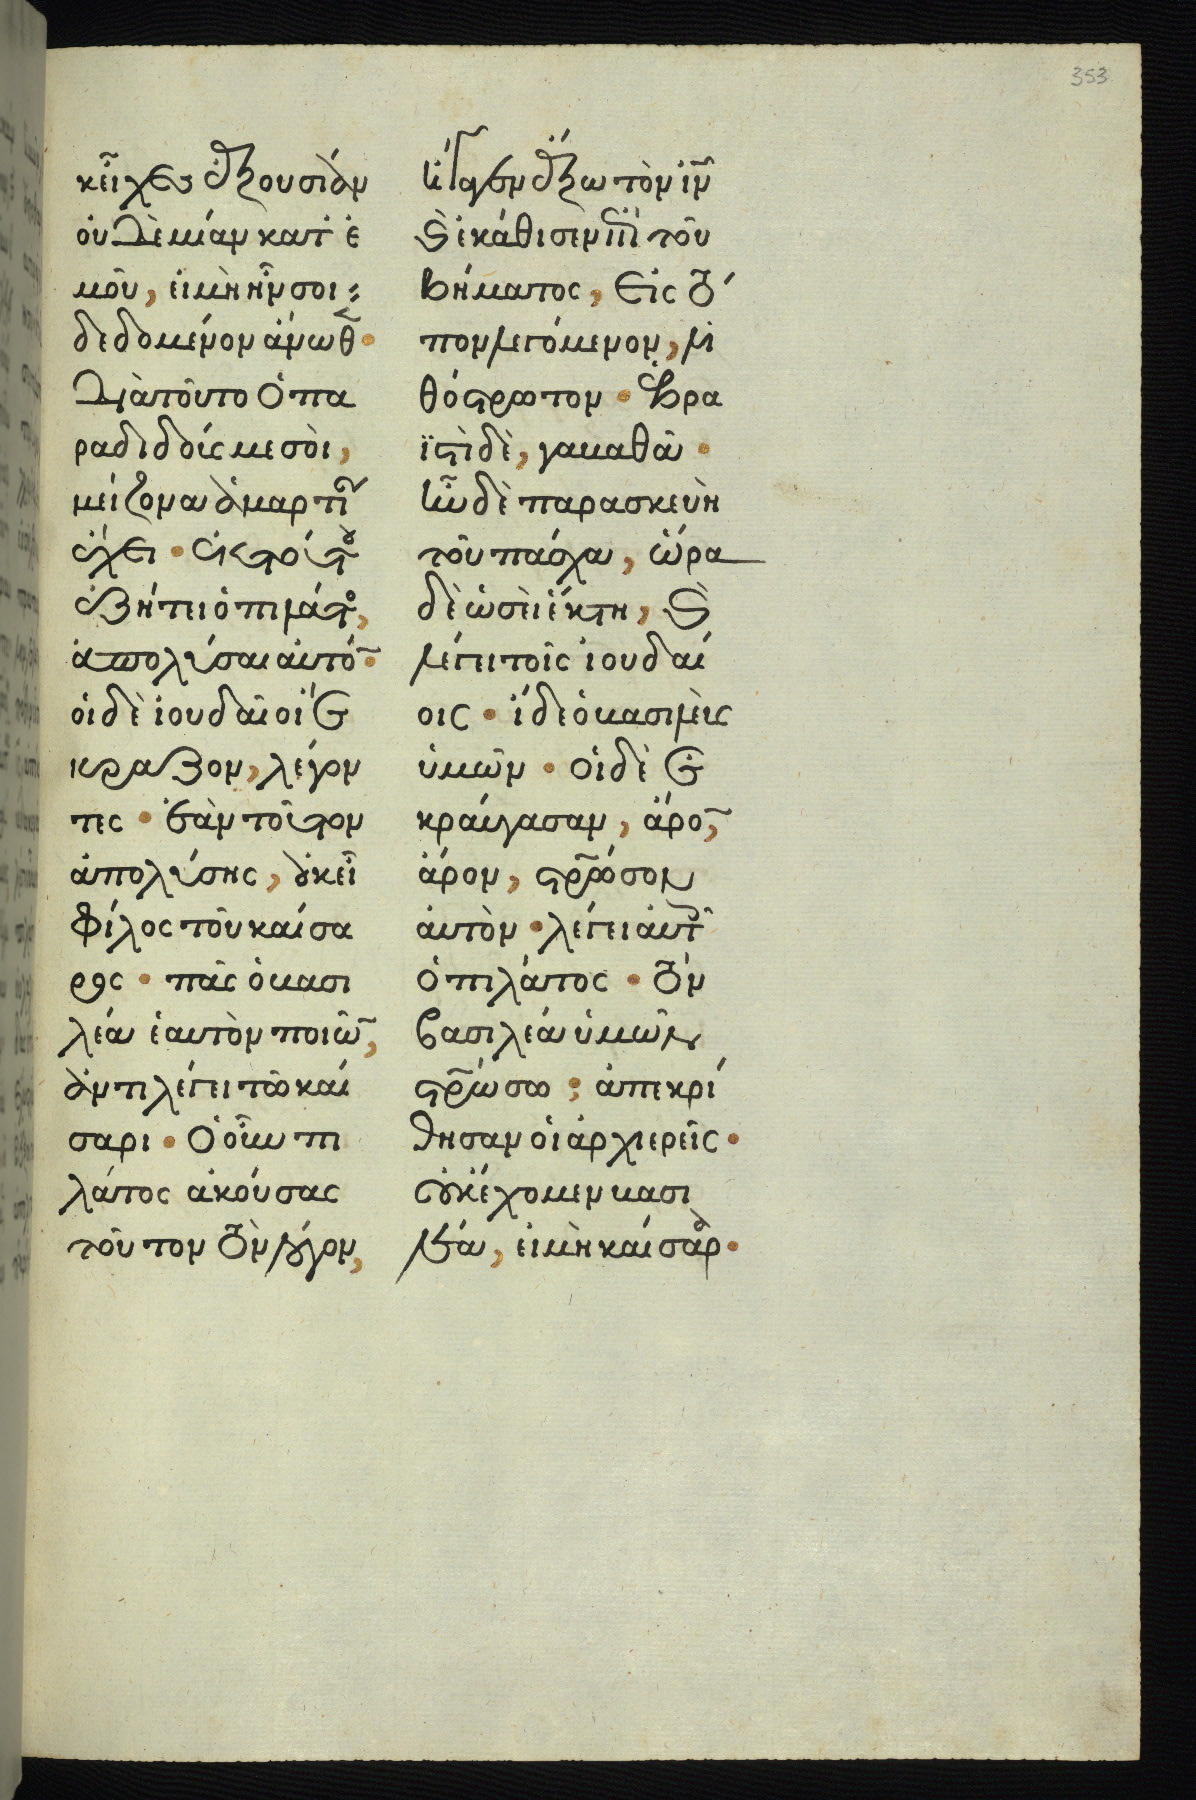 353
κ εἶχες ἐξουσίαν
οὐδεμίαν κατ ἐ
μοῦ, εἰ μὴ ἦν σοι
δεδομένον ἄνωθ·
Διὰ τοῦτο ὁ πα
ραδιδούς με σοὶ,
μείζονα ἁμαρτί
ἔχει · ἐκ τούτου
ἐζήτει ὁ πιλάτος,
ἀπολῦσαι αὐτό·
οἱ δὲ ἰουδαῖοι ἔ
κραζον, λέγον
τες · ἐὰν τοῦτον
ἀπολύσης, οὐκ εἶ
φίλος τοῦ καίσα
ρος · πᾶς ὁ βασι
λέα ἑαυτὸν ποιῶ,
ἀντιλέγει τῶ καί
σαρι · Ὁ οὖν πι
λάτος ἀκούσας
τοῦτον τὸν λόγον,
ἤγαγεν ἔξω τὸν ιν
καὶ ἐκάθισεν ἐπὶ τοῦ
βήματος, εἰς τό
πον λεγόμενον, λι
θόστρωτον · ἑβρα
ϊστὶ δὲ, γαβαθᾶ ·
ἦν δὲ παρασκευὴ
τοῦ πάσχα, ὥρα
δὲ ὡσεὶ ἕκτη, καὶ
λέγει τοῖς ἰουδαί
οις · ἴδε ὁ βασιλεὺς
ὑμῶν · οἱ δὲ ἐ
κραύγασαν, ἆρο,
ἆρον, σταύρωσον
αὐτὸν · λέγει αὐτοῖς
ὁ πιλάτος · τὸν
βασιλέα ὑμῶν
σταυρώσω ; ἀπεκρί
θησαν οἱ ἀρχιερεῖς ·
οὐκ ἔχομεν βασι
λέα, εἰ μὴ καίσαρ ·